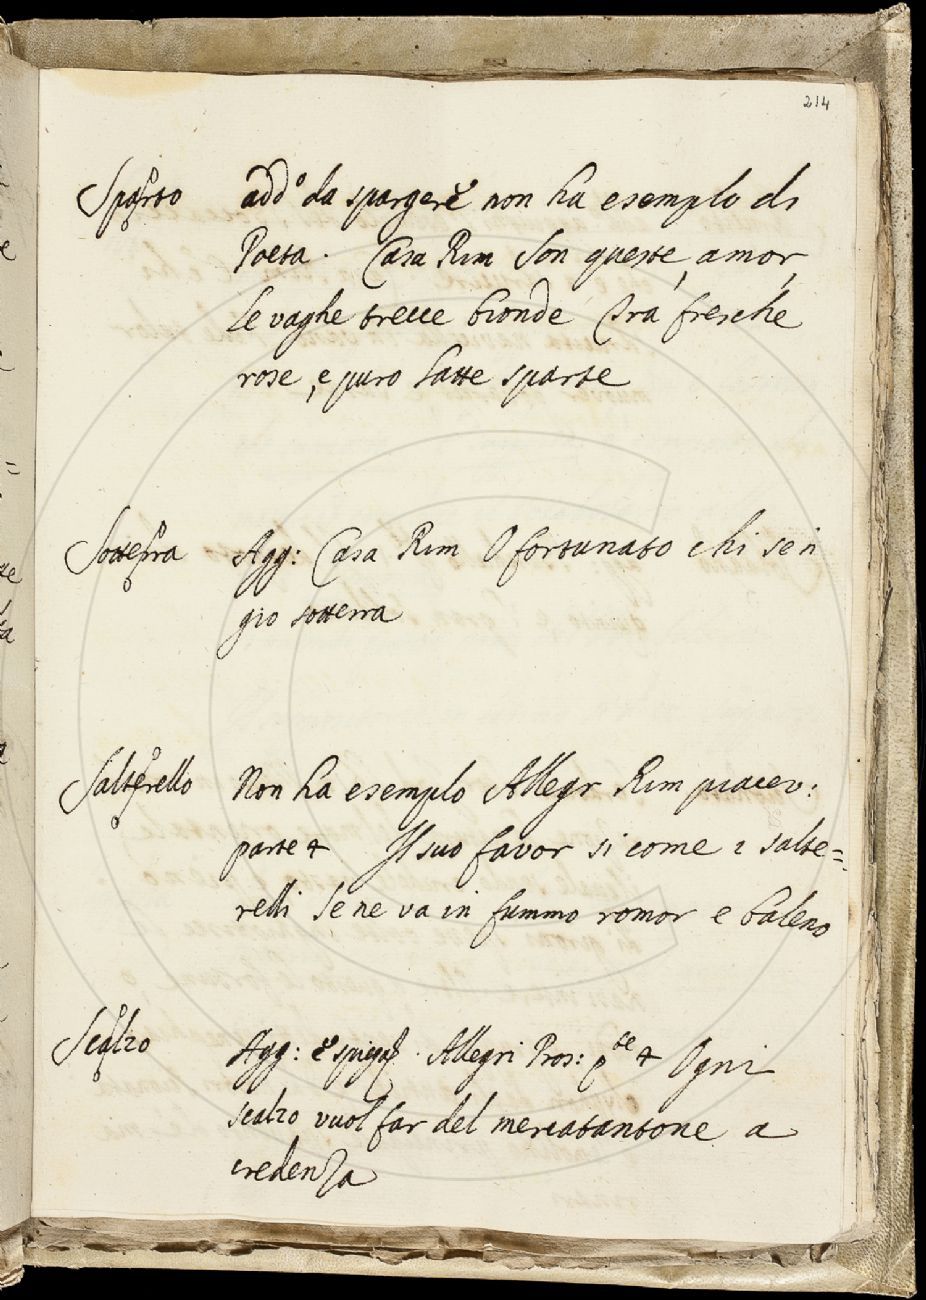 214
Sparto add.º da spargere non ha esemplo di
Poeta. Casa Rim Son queste, amor,
le vaghe trecce bionde Tra' fresche
rose, e puro latte sparte
Sotterra Agg: Casa Rim O fortunato chi se n
gio sotterra
Salterello Non ha esemplo Allegr Rim piacev:
parte 4 Il suo favor si come i salte=
relli Se ne va in fummo romor e baleno
Scalzo Agg: e spiegaz. Allegri Pros: pte 4 Ogni
scalzo vuol far del mercatantone a
credenza